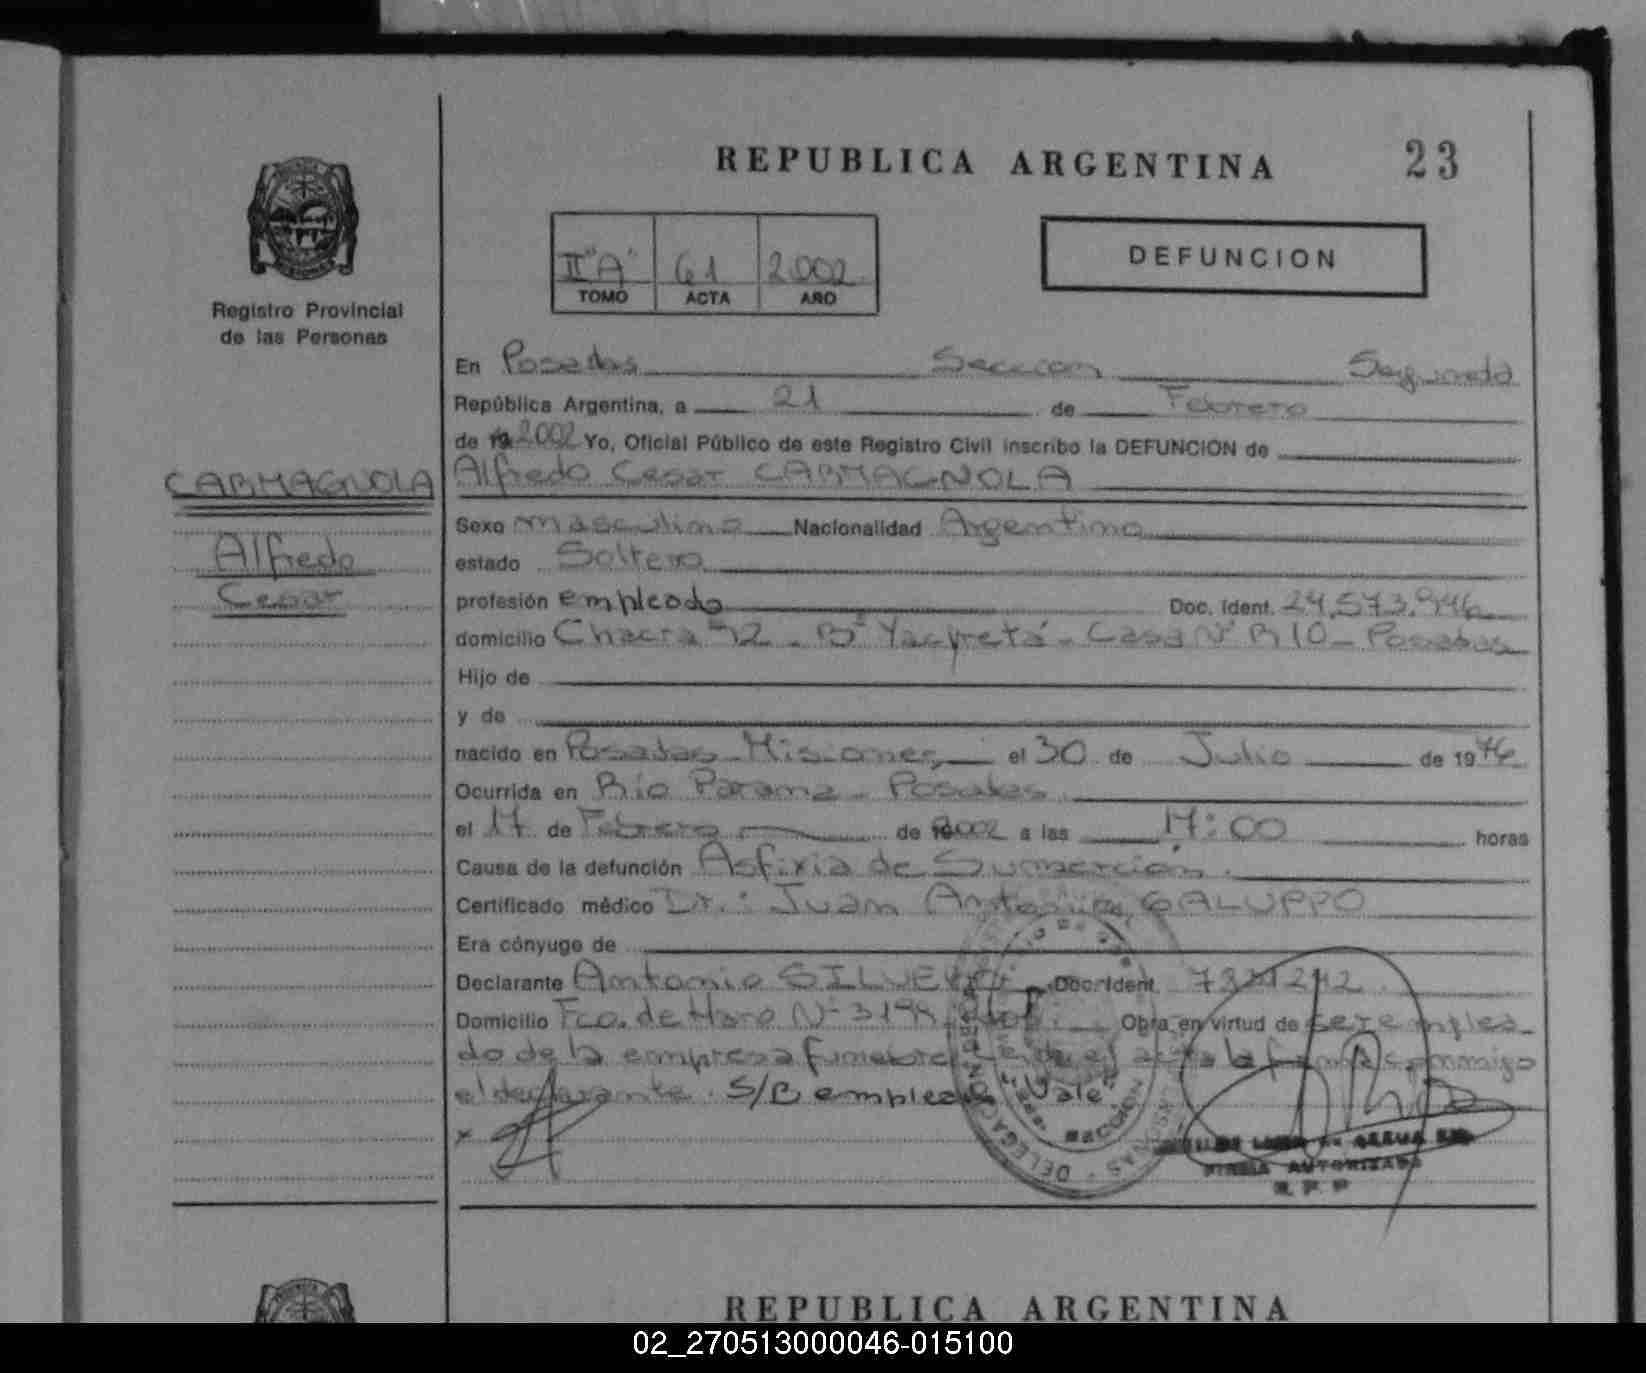 REPUBLICA ARGENTINA
23
II "A" 61 2.002
TOMO ACTA AÑO
DEFUNCION
Registro Provincial
de las Personas
En Posadas Seccion Segunda
República Argentina, a 21 de Febrero
de 2.002 Yo, Oficial Público de este Registro Civil inscribo la DEFUNCION de
Alfredo Cesar CARMAGNOLA
CARMAGNOLA
Alfredo
Cesar
Sexo masculino Nacionalidad Argentino
estado Soltero
profesión empleado Doc. Ident. 24.573.946
domicilio Chacra 92 - Bº Yacyretá - Casa Nº B 10 - Posadas
Hijo de
y de
nacido en Posadas Misiones el 30 de Julio de 19
Ocurrida en Río Parana - Posadas
el 17 de Febrero de 2002 a las 17:00 horas
Causa de la defunción Asfixia de Sumerción
Certificado médico Dr.: Juan Antonio GALUPPO
Era cónyuge de
Declarante Antonio Doc. Ident.
Domicilio Fco. de Haro Nº Obra en virtud de ser emplea-
do de la empresa funebre el acta la firma conmigo
el declarante. S/B empleado Vale
x
SECCION
FIRMA AUTORIZADA
R. P. P
REPUBLICA ARGENTINA
02_270513000046-015100